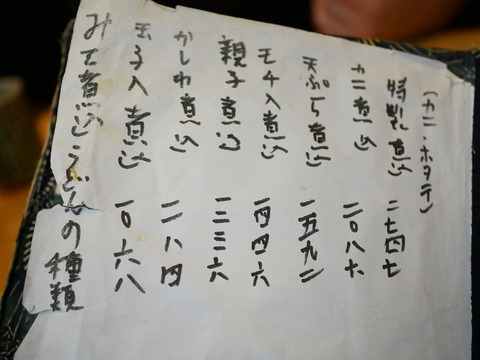 (カニ ホタテ)
特製煮込 二七四七
カニ煮込 二〇八七
天ぷら煮込 一五九二
モチ入煮込 一四四六
親子煮込 一三三六
かしわ煮込 一一八四
玉子入煮込 一〇六八
みそ煮込うどんの種類